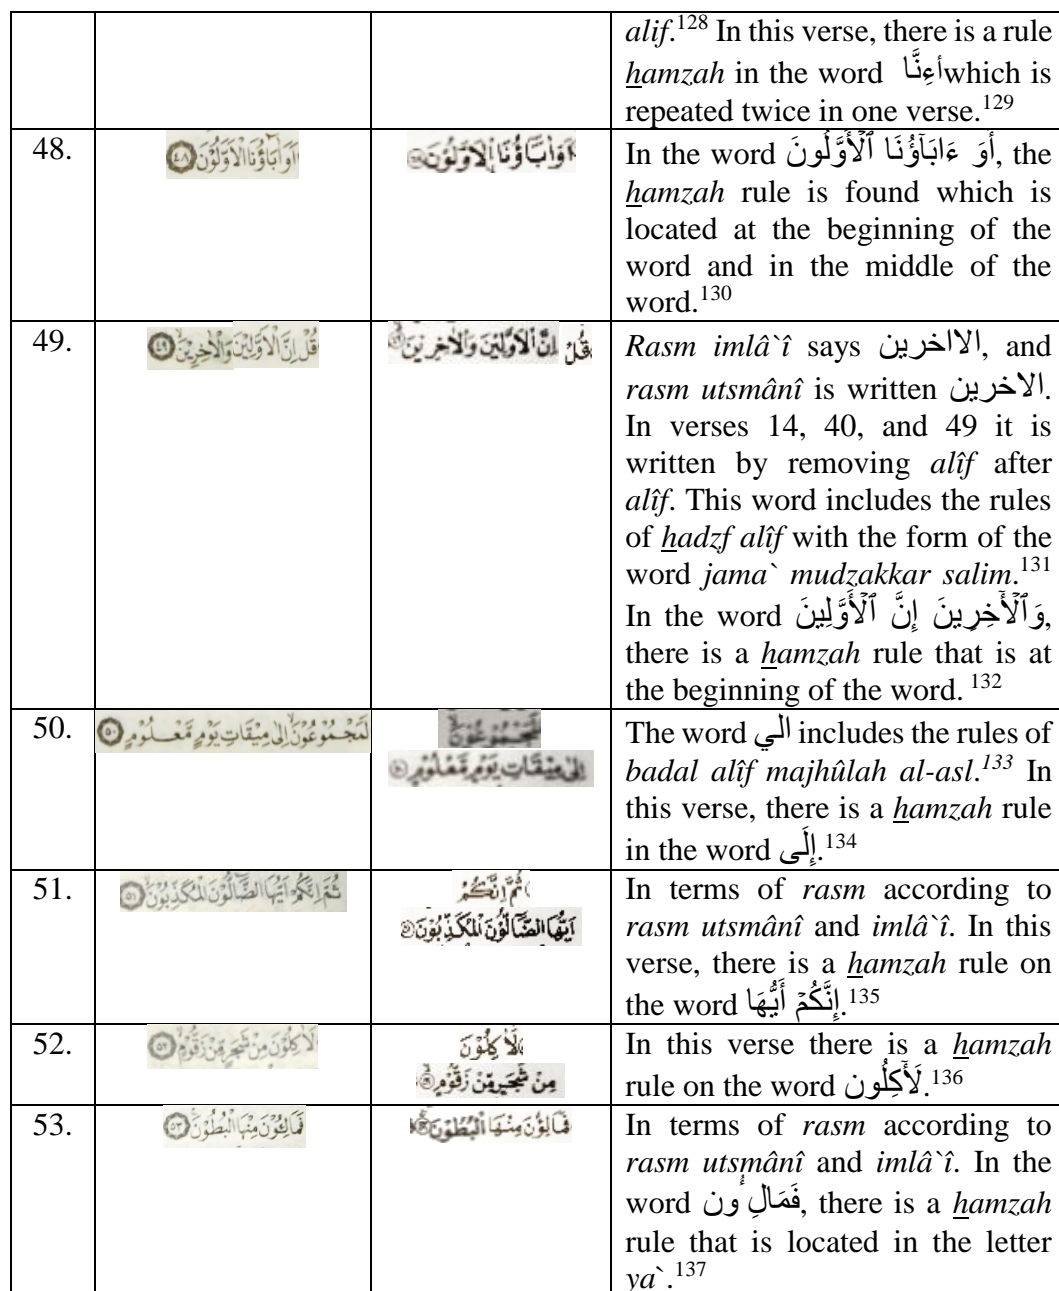 alif.128 In this verse, there is a rule
hamzah in the word أءِنَّا which is
repeated twice in one verse.129
48.
اَوَاٰبَاۤؤُنَا الْاَوَّلُوْنَ ٤٨
اَوَاٰبَاۤؤُنَا الْاَوَّلُوْنَ
In the word أَوَ ءَابَآؤُنَا ٱلْأَوَّلُونَ, the
hamzah rule is found which is
located at the beginning of the
word and in the middle of the
word.130
49.
قُلْ اِنَّ الْاَوَّلِيْنَ وَالْاٰخِرِيْنَ ٤٩
قُلْ اِنَّ الْاَوَّلِيْنَ وَالْاٰخِرِيْنَ
Rasm imlâ`î says الااخرين, and
rasm utsmânî is written الاخرين.
In verses 14, 40, and 49 it is
written by removing alîf after
alîf. This word includes the rules
of hadzf alîf with the form of the
word jama` mudzakkar salim.131
In the word وَٱلْأَٓخِرِينَ إِنَّ ٱلْأَوَّلِينَ,
there is a hamzah rule that is at
the beginning of the word. 132
50.
لَمَجْمُوْعُوْنَ اِلٰى مِيْقَاتِ يَوْمٍ مَّعْلُوْمٍ ٥٠
لَمَجْمُوْعُوْنَ
اِلٰى مِيْقَاتِ يَوْمٍ مَّعْلُوْمٍ
The word الي includes the rules of
badal alîf majhûlah al-asl.133 In
this verse, there is a hamzah rule
in the word إِلَى.134
51.
ثُمَّ اِنَّكُمْ اَيُّهَا الضَّاۤلُّوْنَ الْمُكَذِّبُوْنَ ٥١
ثُمَّ اِنَّكُمْ
اَيُّهَا الضَّاۤلُّوْنَ الْمُكَذِّبُوْنَ
In terms of rasm according to
rasm utsmânî and imlâ`î. In this
verse, there is a hamzah rule on
the word إِنَّكُمْ أَيُّهَا.135
52.
لَاٰكِلُوْنَ مِنْ شَجَرٍ مِّنْ زَقُّوْمٍ ٥٢
لَاٰكِلُوْنَ
مِنْ شَجَرٍ مِّنْ زَقُّوْمٍ
In this verse there is a hamzah
rule on the word لَأَٓكِلُون.136
53.
فَمَالِـُٔوْنَ مِنْهَا الْبُطُوْنَ ٥٣
فَمَالِـُٔوْنَ مِنْهَا الْبُطُوْنَ
In terms of rasm according to
rasm utsmânî and imlâ`î. In the
word فَمَالِ ُٔون, there is a hamzah
rule that is located in the letter
ya`.137